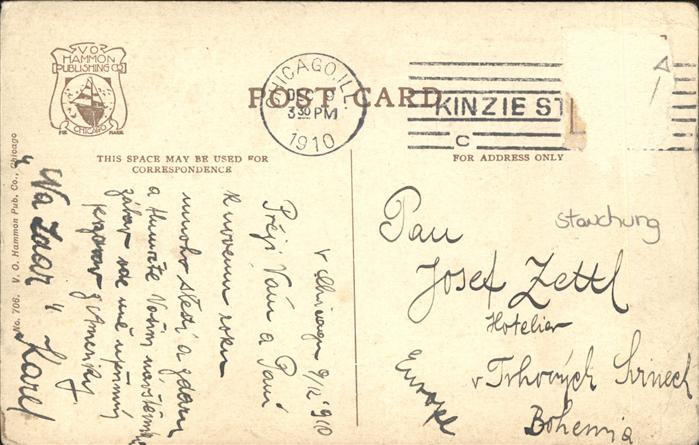 V.O.
HAMMON
PUBLISHING CO.
CHICAGO
TRADE MARK
POST CARD
CHICAGO, ILL.
DEC 9
3 30 PM
1910
KINZIE ST
C
THIS SPACE MAY BE USED FOR
CORRESPONDENCE
FOR ADDRESS ONLY
No. 706. V. O. Hammon Pub. Co., Chicago
v Chicagu 9/12 1910
Přeji Vám a Paní
k novému roku
mnoho štěstí a zdaru
a
zábav
pozdrav z Ameriky
"Na Zdar" Karel
Pan
Josef Zettl
Hotelier
v Trhových Svinech
Bohemia
Europe
stauchung